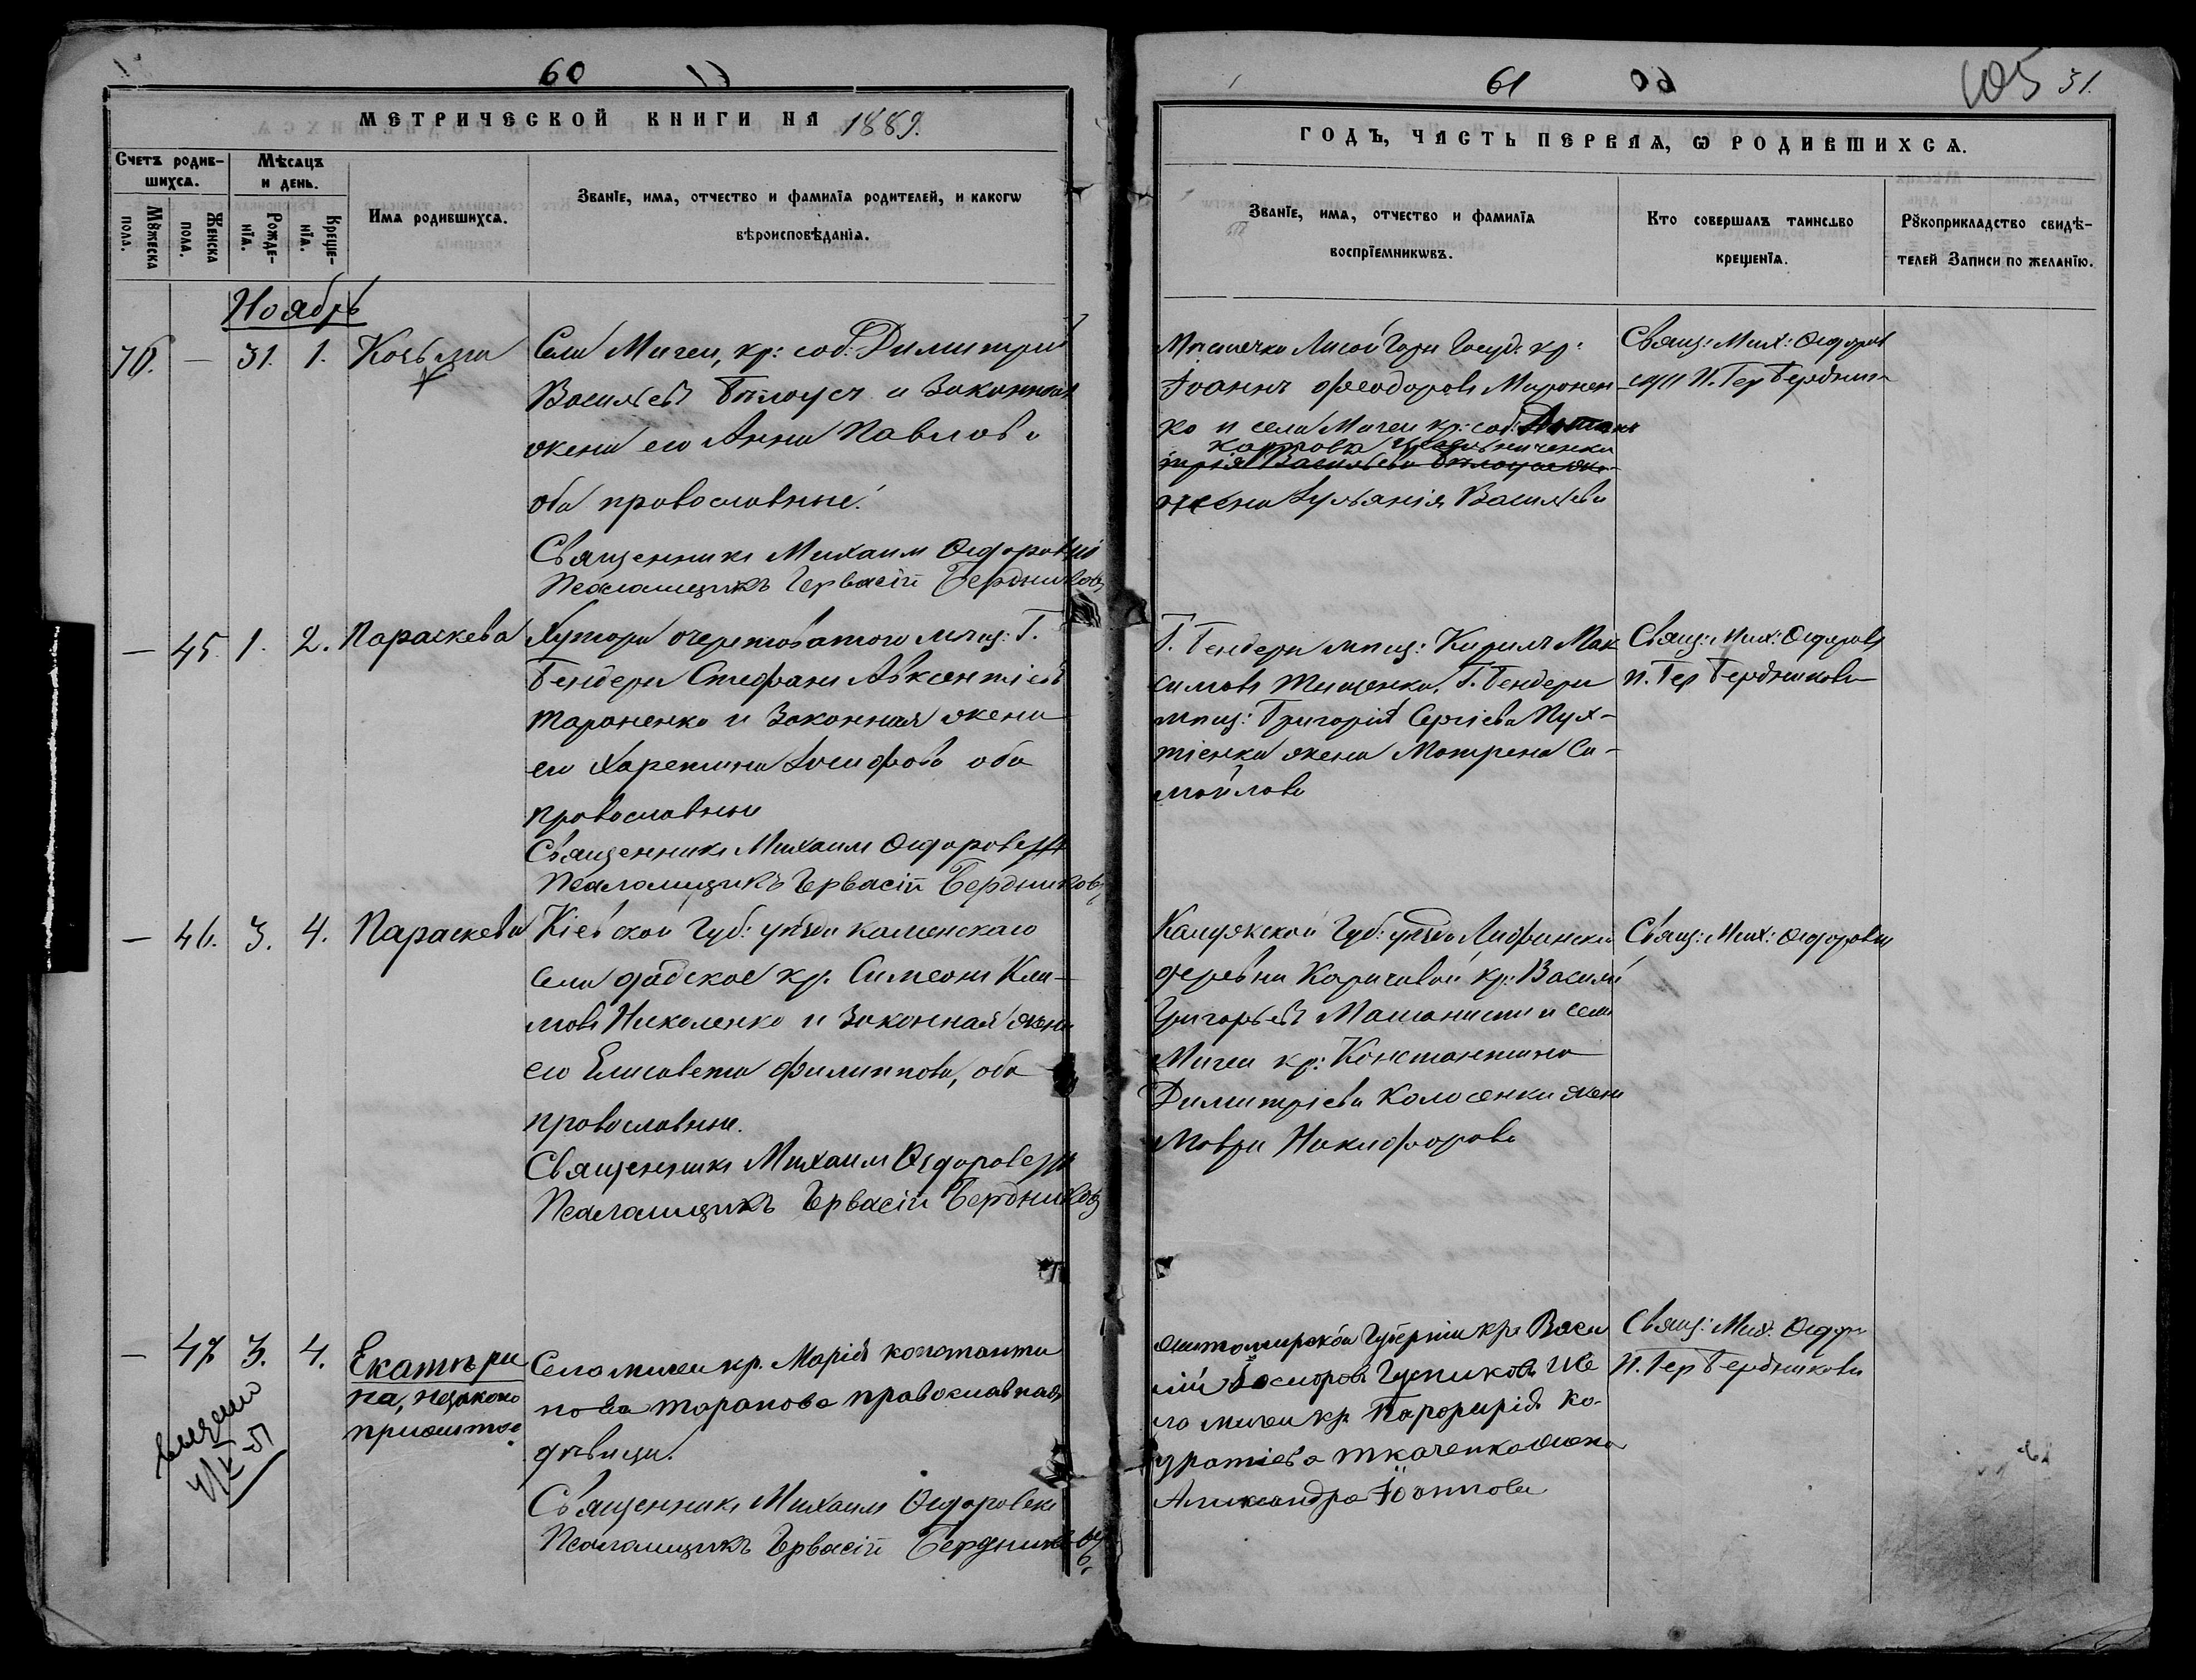 60
МЕТРИЧЕСКОЙ КНИГИ НА 1889.
Счетъ родившихся.
Мѣсяцъ и день.
Мꙋжеска пола.
Женска пола.
Рожденїя.
Крещенїя.
Имя родившихся.
Званїе, имя, отчество и фамилїя родителей, и какогѡ
вѣроисповѣданїя.
Ноябрь
76. — 31. 1. Козьма
Села Мигеи, кр: соб: Димитрій
Васильевъ Бѣлоусъ и Законная
жена его Анна Павлова
оба православные.
Священникъ Михаилъ Ѳедоровскій
Псаломщикъ Гервасій Бердниковъ
— 45. 1. 2. Параскева
Хутора Очеретоватого мѣщ: Г.
Бендеры Стефанъ Авксентіевъ
Тараненко и Законная жена
его Харетина Іосифова оба
православные
Священникъ Михаилъ Ѳедоровскій
Псаломщикъ Гервасій Бердниковъ
— 46. 3. 4. Параскева
Кіевской Губ: уѣзда Каменскаго
села кр. Симеонъ Кли-
мовъ Николенко и Законная жена
его Елисавета Филиппова, оба
православные.
Священникъ Михаилъ Ѳедоровскій
Псаломщикъ Гервасій Бердниковъ
— 47 3. 4. Екатери
на, незаконо
прижитая
Село Мигеи кр. Марія Константи
нова Таранова православная
дѣвица.
Священникъ Михаилъ Ѳедоровскій
Псаломщикъ Гервасій Бердниковъ
61
105 31.
ГОДЪ, ЧАСТЬ ПЕРВАЯ, Ѡ РОДИВШИХСЯ.
Званїе, имя, отчество и фамилїя
воспрїемникѡвъ.
Кто совершалъ таинство
крещенїя.
Рꙋкоприкладство свидѣ-
телей Записи по желанїю.
Мѣстечка Лисой Гори Госуд: кр:
Іоаннъ Феодоровъ Миронен-
ко и села Мигеи кр: соб:
Карпова
Васильева Бѣлоуса
жена Іуліанія Васильева
Свящ: Мих: Ѳедоров
скій П. Гер Бердник
Г. Бендеры мѣщ: Кирилъ Мак
симовъ Тищенко, Г. Бендеры
мѣщ: Григорія Сергіева Пух-
тіенка жена Матрена Са-
мойлова
Свящ: Мих: Ѳедоровъ
П. Гер Бердниковъ
Калужской Губ: уѣзда
деревни кр: Василій
Григорьевъ и села
Мигеи кр: Константина
Димитріева Колосенка жена
Мавра Никифорова
Свящ: Мих: Ѳедоровскій
Житомирской Губерніи кр. Васи
лій Гусниковъ Се
ло Мигеи кр. Парфирія Ко
дратіева Ткаченка жена
Александра Іоаннова
Свящ: Мих. Ѳедор
П. Гер Бердниковъ